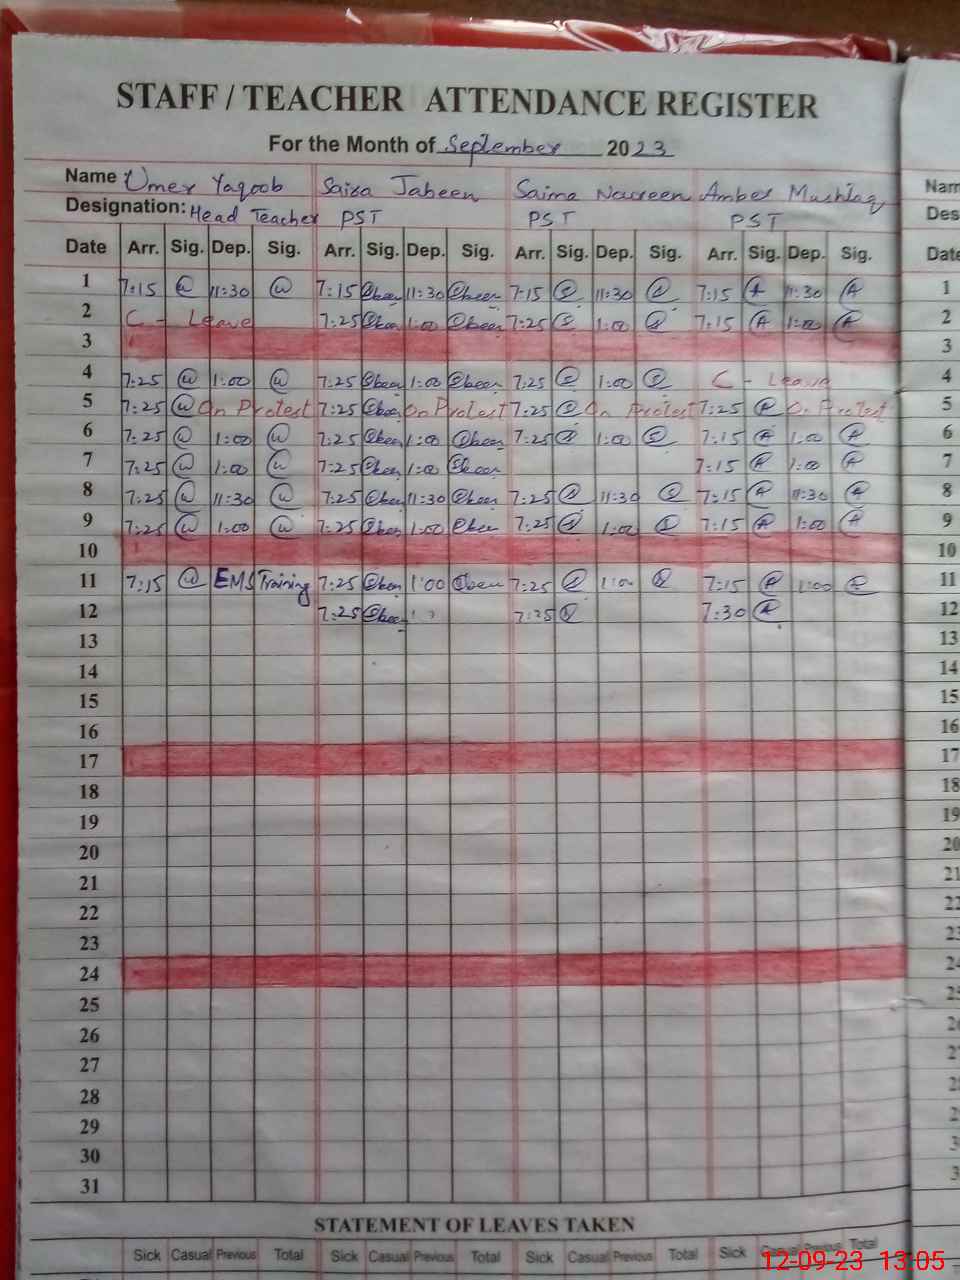 STAFF / TEACHER ATTENDANCE REGISTER
For the Month of September 2023
Name Umer Yaqoob Saira Jabeen Saima Naureen Amber Mushtaq Nam
Designation: Head Teacher PST PST PST Des
Date Arr. Sig. Dep. Sig. Arr. Sig. Dep. Sig. Arr. Sig. Dep. Sig. Arr. Sig. Dep. Sig. Date
1 7:15 11:30 7:15 11:30 7:15 11:30 7:15 11:30 1
2 C - Leave 7:25 1:00 7:25 1:00 7:15 1:00 2
3 3
4 7:25 1:00 7:25 1:00 7:25 1:00 C - Leave 4
5 7:25 On Protest 7:25 On Protest 7:25 On Protest 7:25 On Protest 5
6 7:25 1:00 7:25 1:00 7:25 1:00 7:15 1:00 6
7 7:25 1:00 7:25 1:00 7:15 1:00 7
8 7:25 11:30 7:25 11:30 7:25 11:30 7:15 11:30 8
9 7:25 1:00 7:25 1:00 7:25 1:00 7:15 1:00 9
10 10
11 7:15 EMIS Training 7:25 1:00 7:25 1:00 7:15 1:00 11
12 7:25 7:25 7:30 12
13 13
14 14
15 15
16 16
17 17
18 18
19 19
20 20
21 21
22 22
23 23
24 24
25 25
26 26
27
28
29
30
31
STATEMENT OF LEAVES TAKEN
Sick Casual Previous Total Sick Casual Previous Total Sick Casual Previous Total Sick Casual Previous Total
12-09-23 13:05